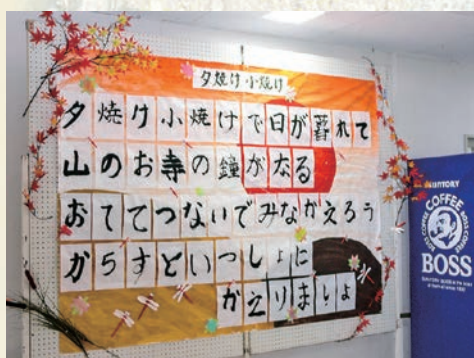 夕焼け小焼け
夕焼け小焼けで日が暮れて
山のお寺の鐘がなる
おててつないでみなかえろう
からすといっしょに
かえりましょ
SUNTORY
COFFEE
BOSS